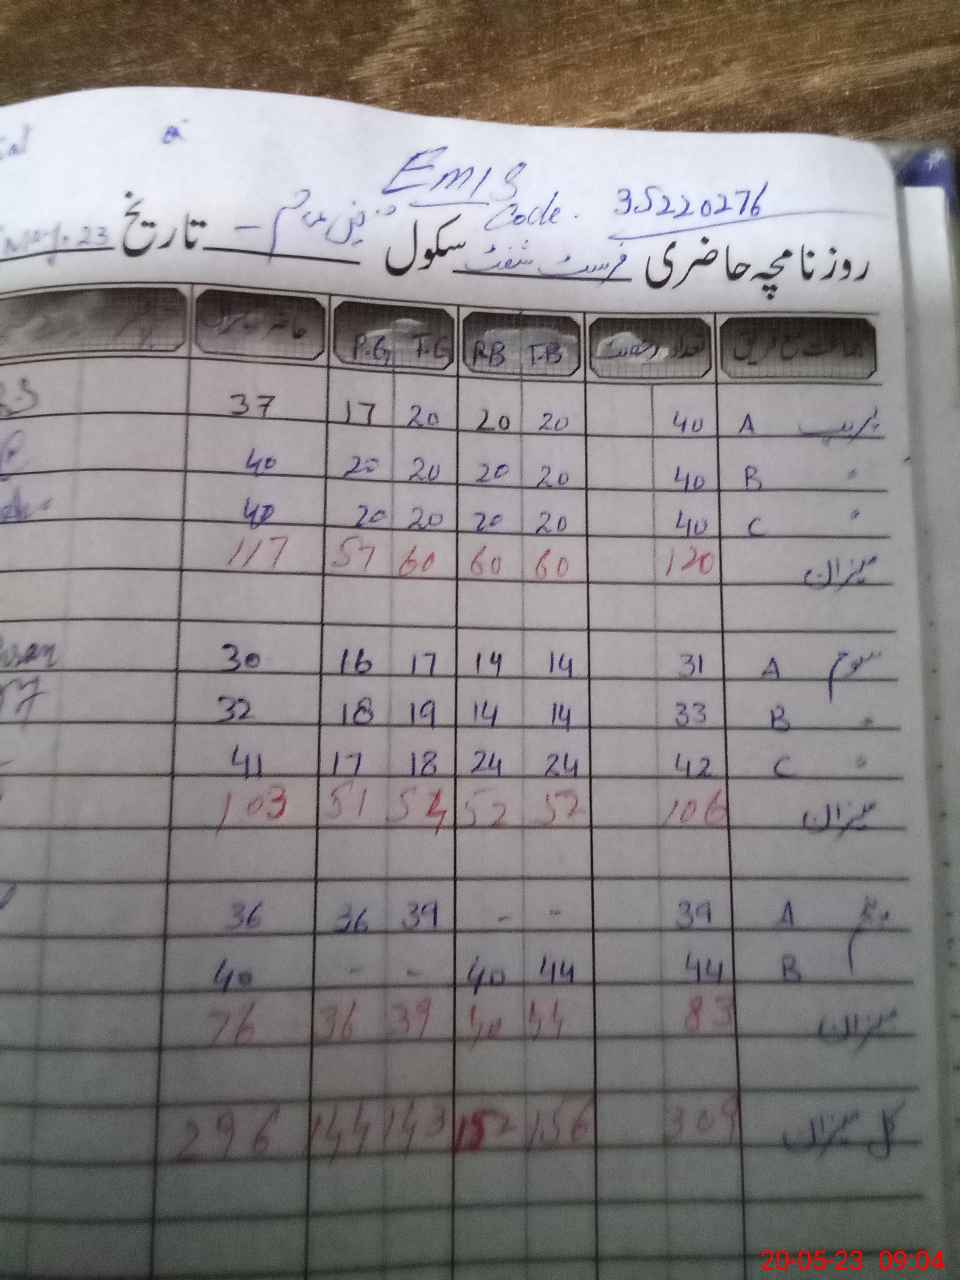 Emis
Code. 35220276
روزنامچہ حاضری فرسٹ شفٹ سکول تاریخ May.23
P.G T.G P.B T.B تعداد
37 17 20 20 20 40 A
40 20 20 20 20 40 B "
40 20 20 20 20 40 C "
117 57 60 60 60 120 میزان
30 16 17 14 14 31 A سوم
32 18 19 14 14 33 B "
41 17 18 24 24 42 C "
103 51 54 52 52 106 میزان
36 36 39 - - 39 A
40 - - 40 44 44 B
76 36 39 40 44 83 میزان
296 144 143 152 156 309 کل میزان
20-05-23 09:04